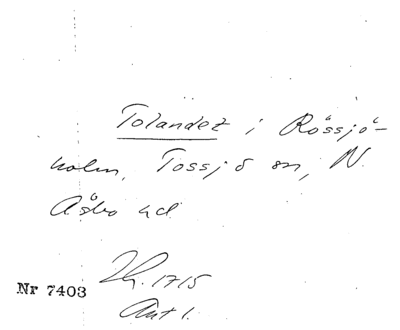 Tolandet i Rössjö-
holm, Tossjö sn, N.
Åsbo hd.
1715
Nr 7403
Ant 1.